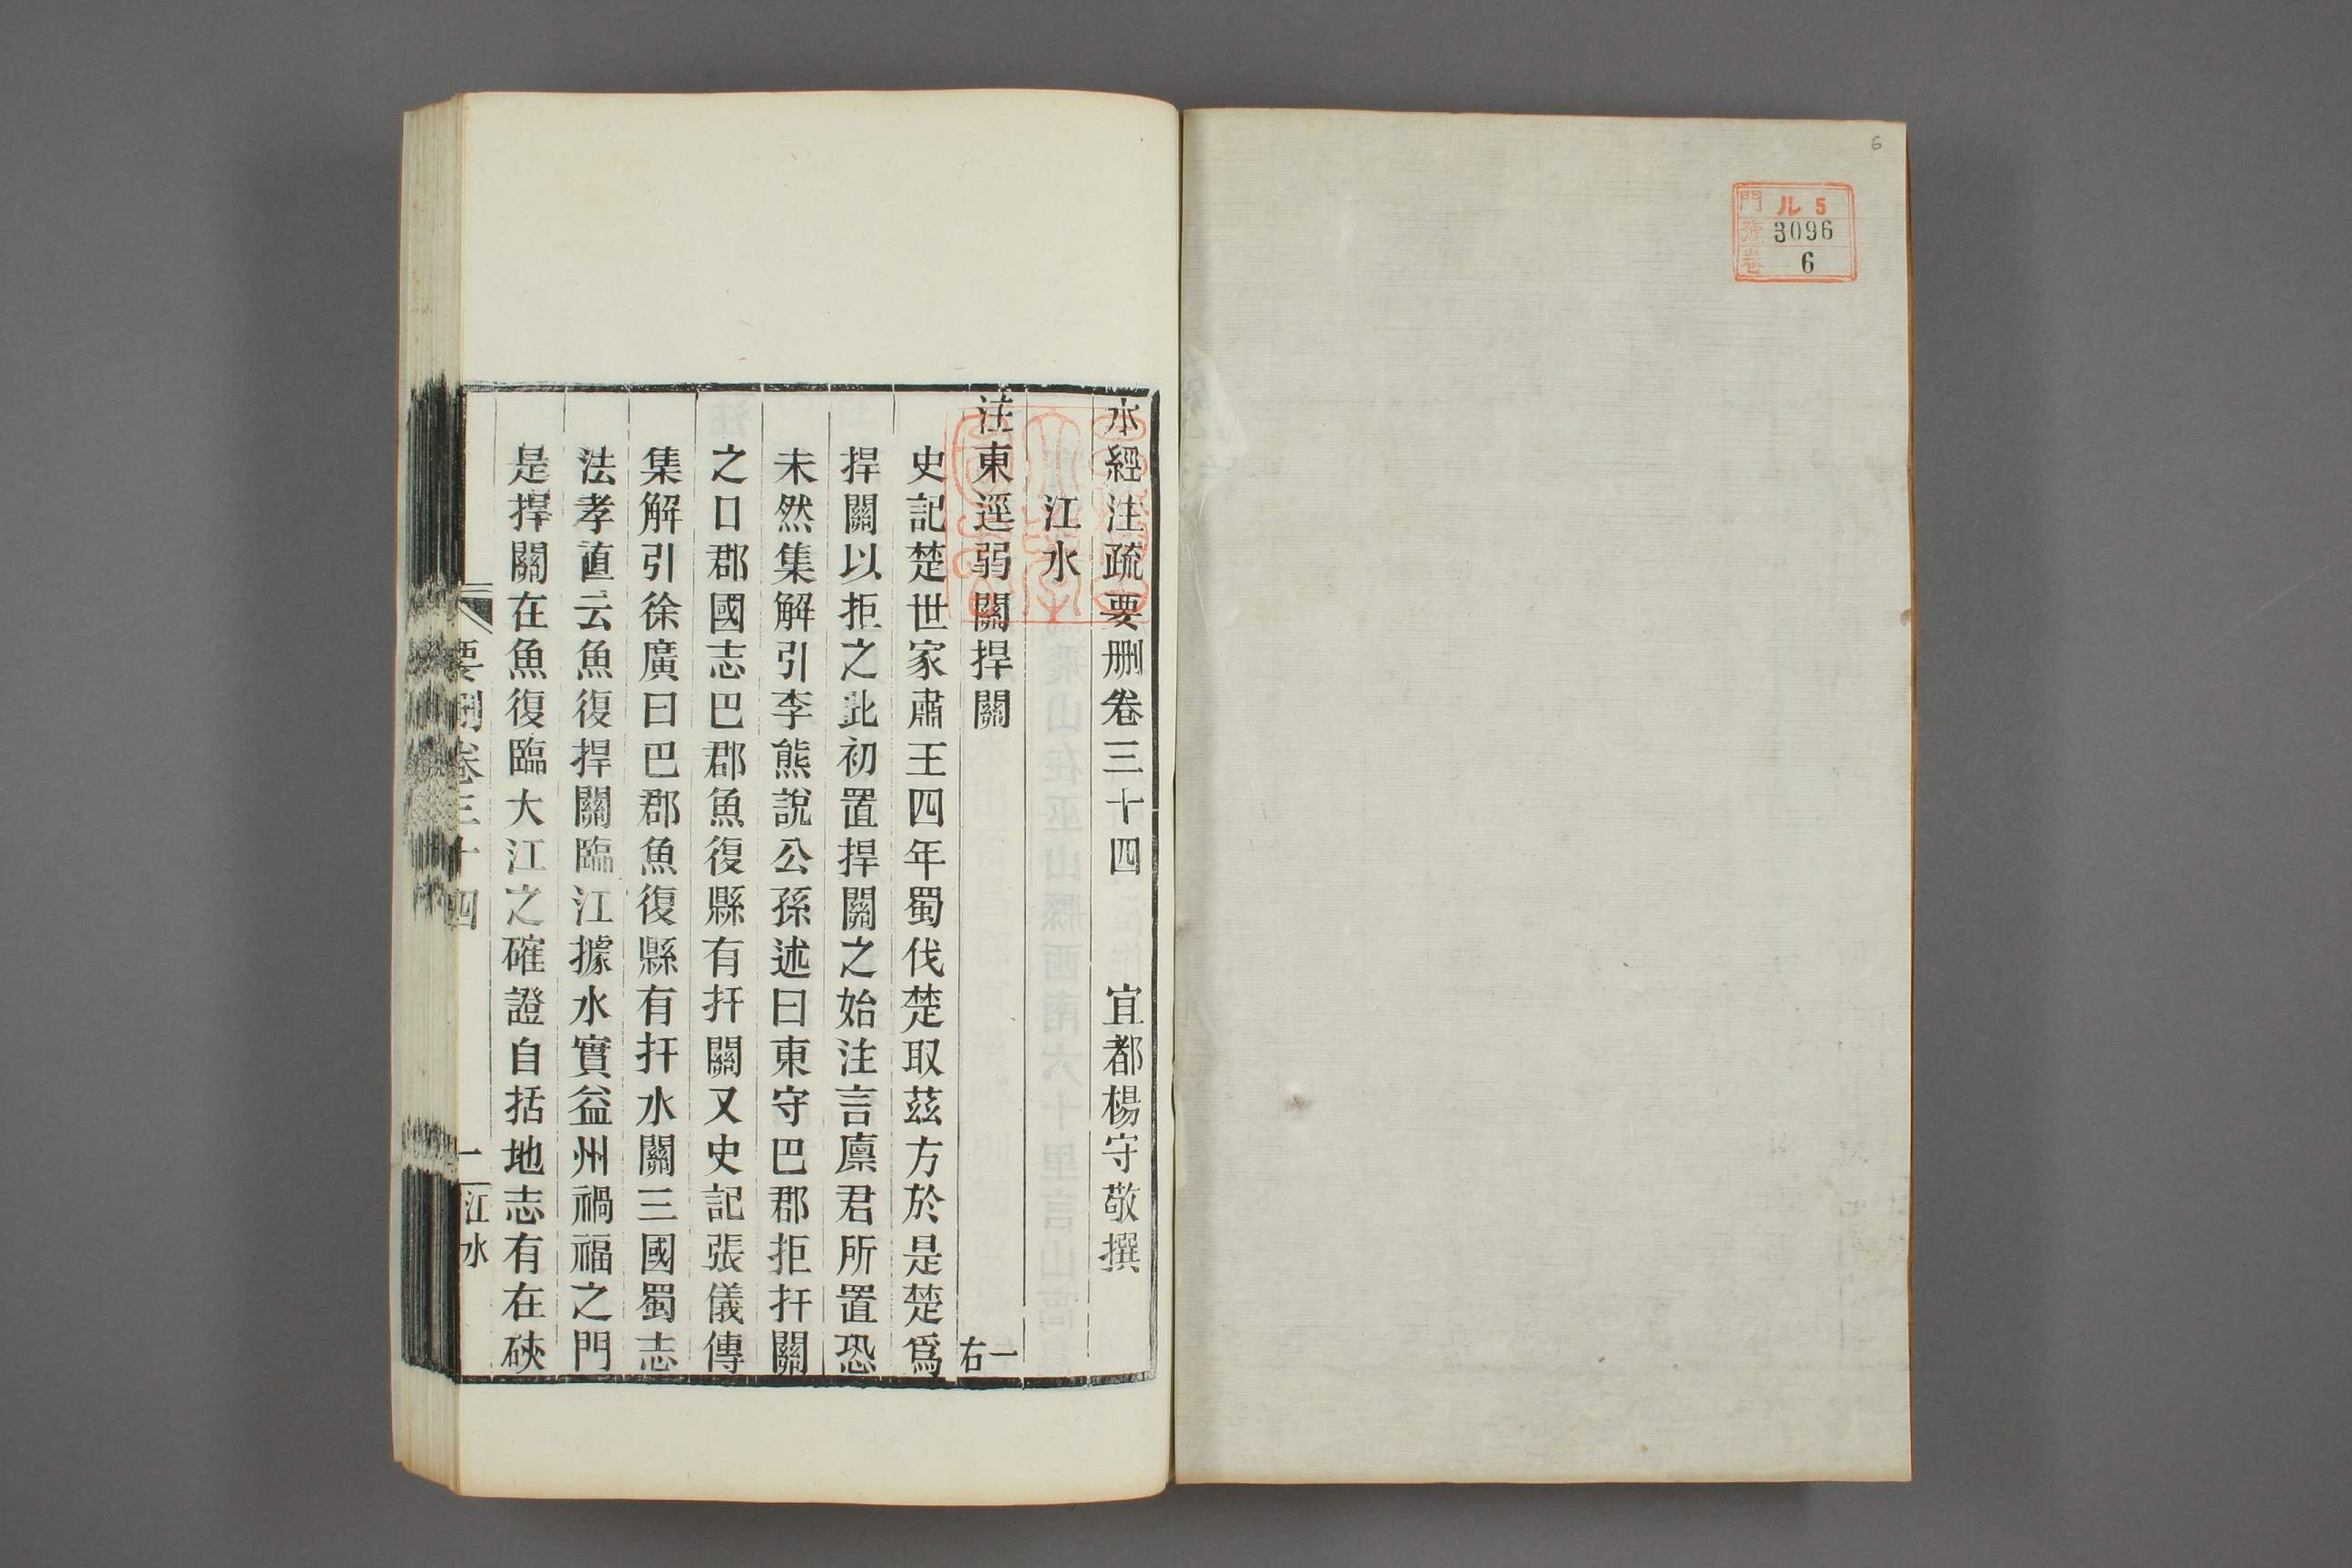 6
門 ル 5
號 3096
卷 6
水經注疏要删卷三十四 宜都楊守敬撰
江水
注東逕弱關捍關 一右
史記楚世家肅王四年蜀伐楚取茲方於是楚爲
捍關以拒之此初置捍關之始注言廪君所置恐
未然集解引李熊說公孫述曰東守巴郡拒扞關
之口郡國志巴郡魚復縣有扞關又史記張儀傳
集解引徐廣曰巴郡魚復縣有扞水關三國蜀志
法孝直云魚復捍關臨江據水實益州禍福之門
是捍關在魚復臨大江之確證自括地志有在硤
要删卷三十四 一 江水